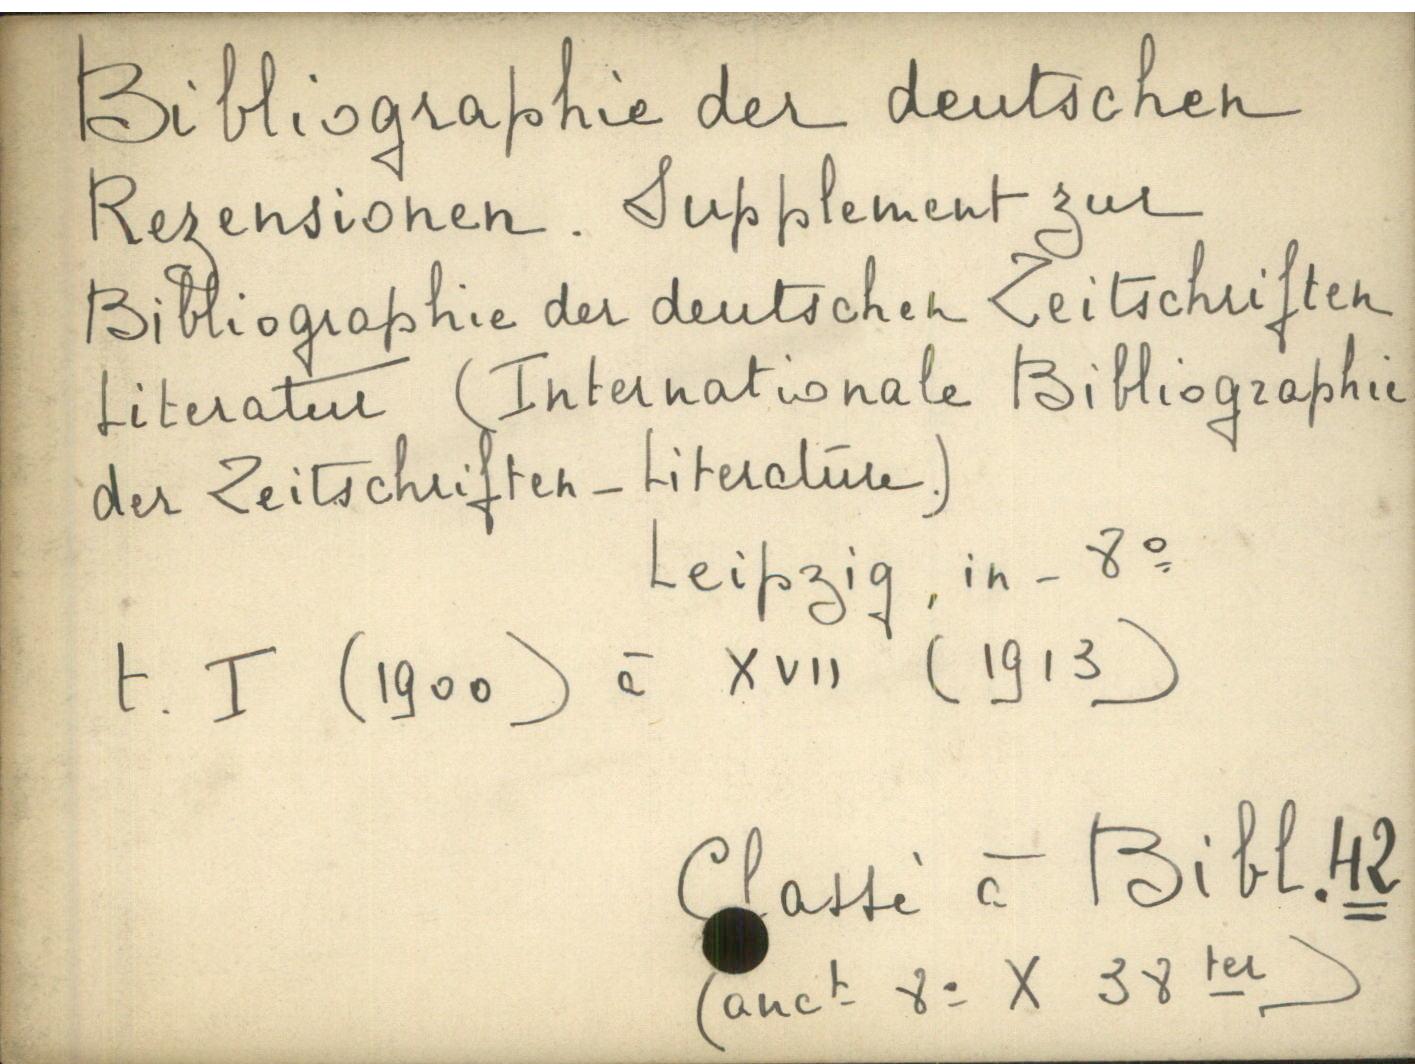 Bibliographie der deutschen
Rezensionen. Supplement zur
Bibliographie der deutschen Zeitschriften
Literatur (Internationale Bibliographie
der Zeitschriften - Literature.)
Leipzig, in - 8º
t. I (1900) à XVII (1913)
Classé à Bibl. 42
(anct 8º X 38 ter)